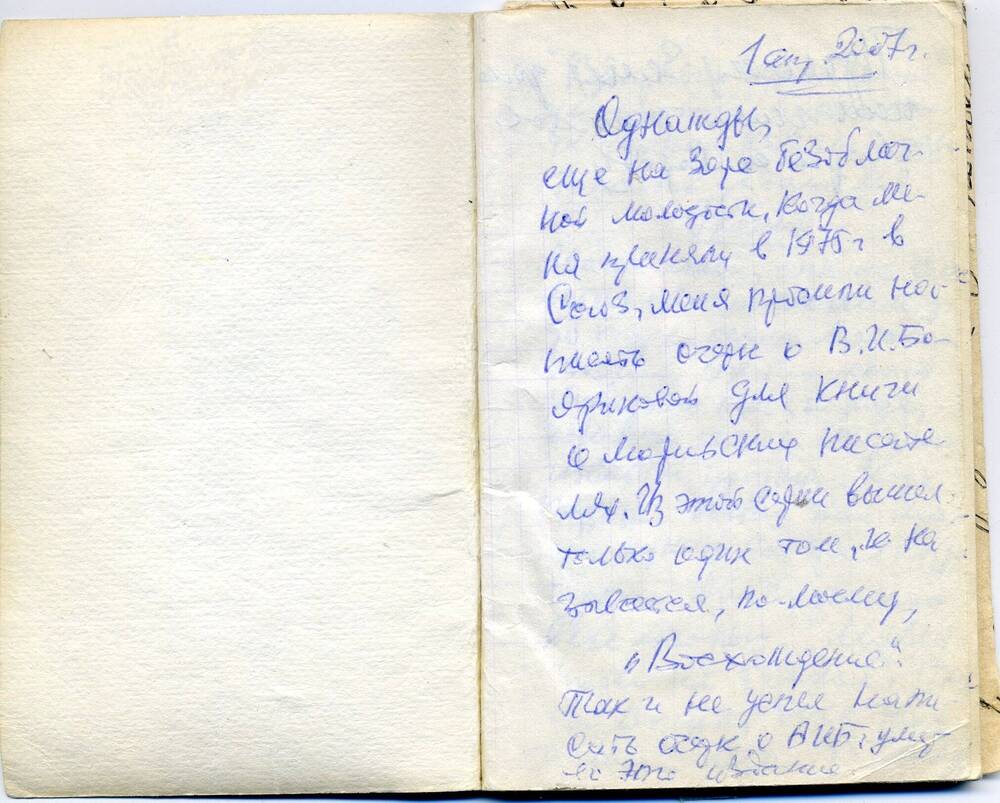 1 апр. 2007 г.
Однажды,
еще на заре безоблач-
ной молодости, когда ме-
ня приняли в 1975 г в
Союз, меня просили на-
писать очерк о В.И.Бо-
яриновой для книги
о марийских писате
лях. Из этой серии вышел
только один том, и на
зывался, по-моему,
"Восхождение".
Так и не успел напи-
сать очерк о ВИБ:
это издание.